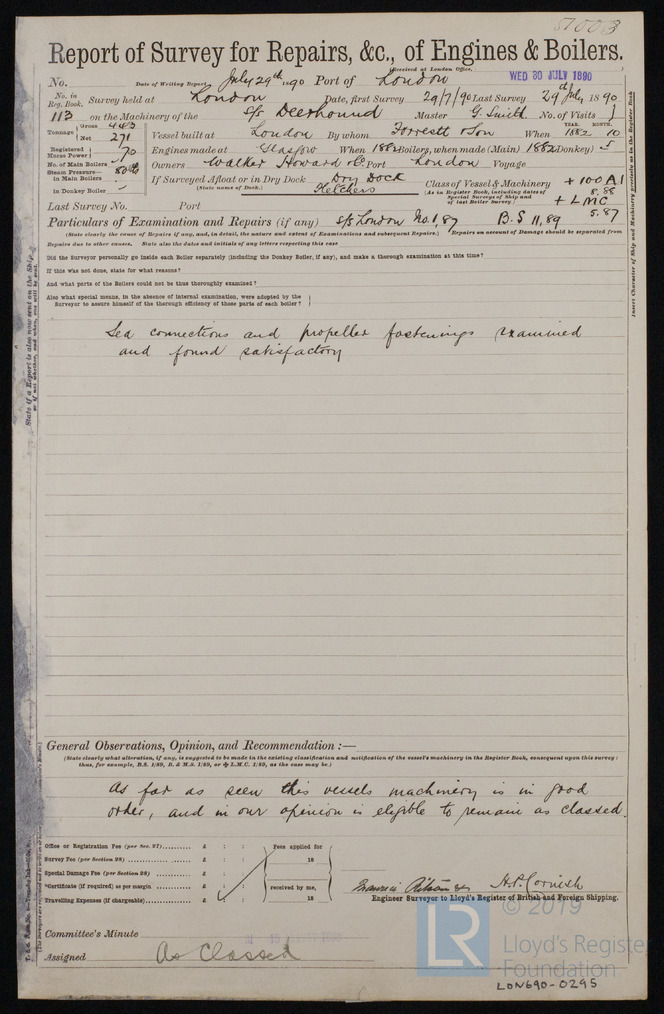 51003
Report of Survey for Repairs, &c., of Engines & Boilers.
(Received at London Office, WED 30 JULY 1890
No. Date of Writing Report July 29th 1890 Port of London
No. in Reg. Book. Survey held at London Date, first Survey 29/7/90 Last Survey 29th July 1890
113 on the Machinery of the S/s Deerhound Master G. Smith No. of Visits 1
Tonnage Gross 443 Net 271 Vessel built at London By whom Forrestt & Son When YEAR. 1882 MONTH. 10
Registered Horse Power 70 Engines made at Glasgow When 1882 Boilers, when made (Main) 1882 (Donkey) 5
No. of Main Boilers 1 Owners Walker Howard &c Port London Voyage
Steam Pressure— in Main Boilers 80 lb If Surveyed Afloat or in Dry Dock Dry Dock Class of Vessel & Machinery + 100 A1
in Donkey Boiler (State name of Dock.) Fletchers (As in Register Book, including dates of Special Surveys of Ship and of last Boiler Survey.) 8.88
+ LMC 5.87
Last Survey No. Port
Particulars of Examination and Repairs (if any) S/S London No. 1, 87 B.S 11,89
(State clearly the cause of Repairs if any, and, in detail, the nature and extent of Examinations and subsequent Repairs.) Repairs on account of Damage should be separated from
Repairs due to other causes. State also the dates and initials of any letters respecting this case
Did the Surveyor personally go inside each Boiler separately (including the Donkey Boiler, if any), and make a thorough examination at this time?
If this was not done, state for what reasons?
And what parts of the Boilers could not be thus thoroughly examined?
Also what special means, in the absence of internal examination, were adopted by the
Surveyor to assure himself of the thorough efficiency of those parts of each boiler?
Sea connections and propeller fastenings examined
and found satisfactory
General Observations, Opinion, and Recommendation :—
(State clearly what alteration, if any, is suggested to be made in the existing classification and notification of the vessel's machinery in the Register Book, consequent upon this survey:
thus, for example, B.S. 1/89, B. & M.S. 1/89, or ✠ L.M.C. 1/89, as the case may be.)
As far as seen this vessels machinery is in good
order, and in our opinion is eligible to remain as classed.
Office or Registration Fee (per Sec. 27) £ : : Fees applied for
Survey Fee (per Section 28) £ : : 18
Special Damage Fee (per Section 28) £ : :
*Certificate (if required) as per margin £ : : received by me,
Travelling Expenses (if chargeable) £ : : 18
H.P. Cornish
Engineer Surveyor to Lloyd's Register of British and Foreign Shipping.
Committee's Minute
Assigned As Classed
LR © 2019
Lloyd's Register
Foundation
LON690-0295
Insert Character of Ship and Machinery precisely as in the Register Book
State if a Report is also now sent on the Ship
or if not whether, and when, one will be sent.